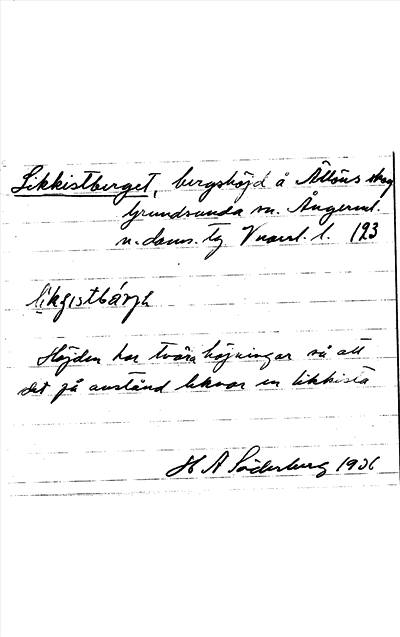 Likkistberget, bergshöjd å Ällöns skog
Grundsunda sn. Ångerml.
n. doms. tg V norrl. l. 193
likgistbärjh
Höjden har tvära höjningar så att
det på avstånd liknar en likkista
H A Söderberg 1936